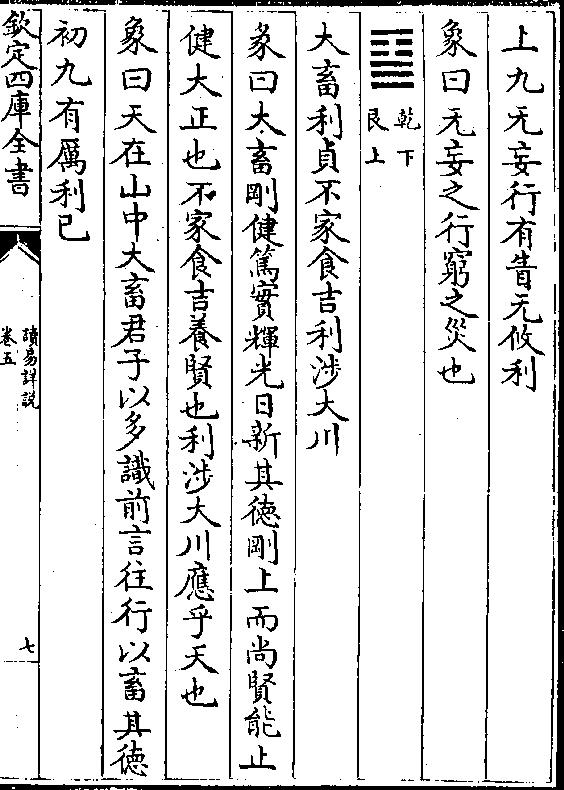 上九无妄行有眚无攸利
象曰无妄之行窮之災也
乾下
艮上
大畜利貞不家食吉利涉大川
彖曰大畜剛健篤實輝光日新其德剛上而尚賢能止
健大正也不家食吉養賢也利涉大川應乎天也
象曰天在山中大畜君子以多識前言往行以畜其德
初九有厲利已
欽定四庫全書
讀易詳説
卷五
七